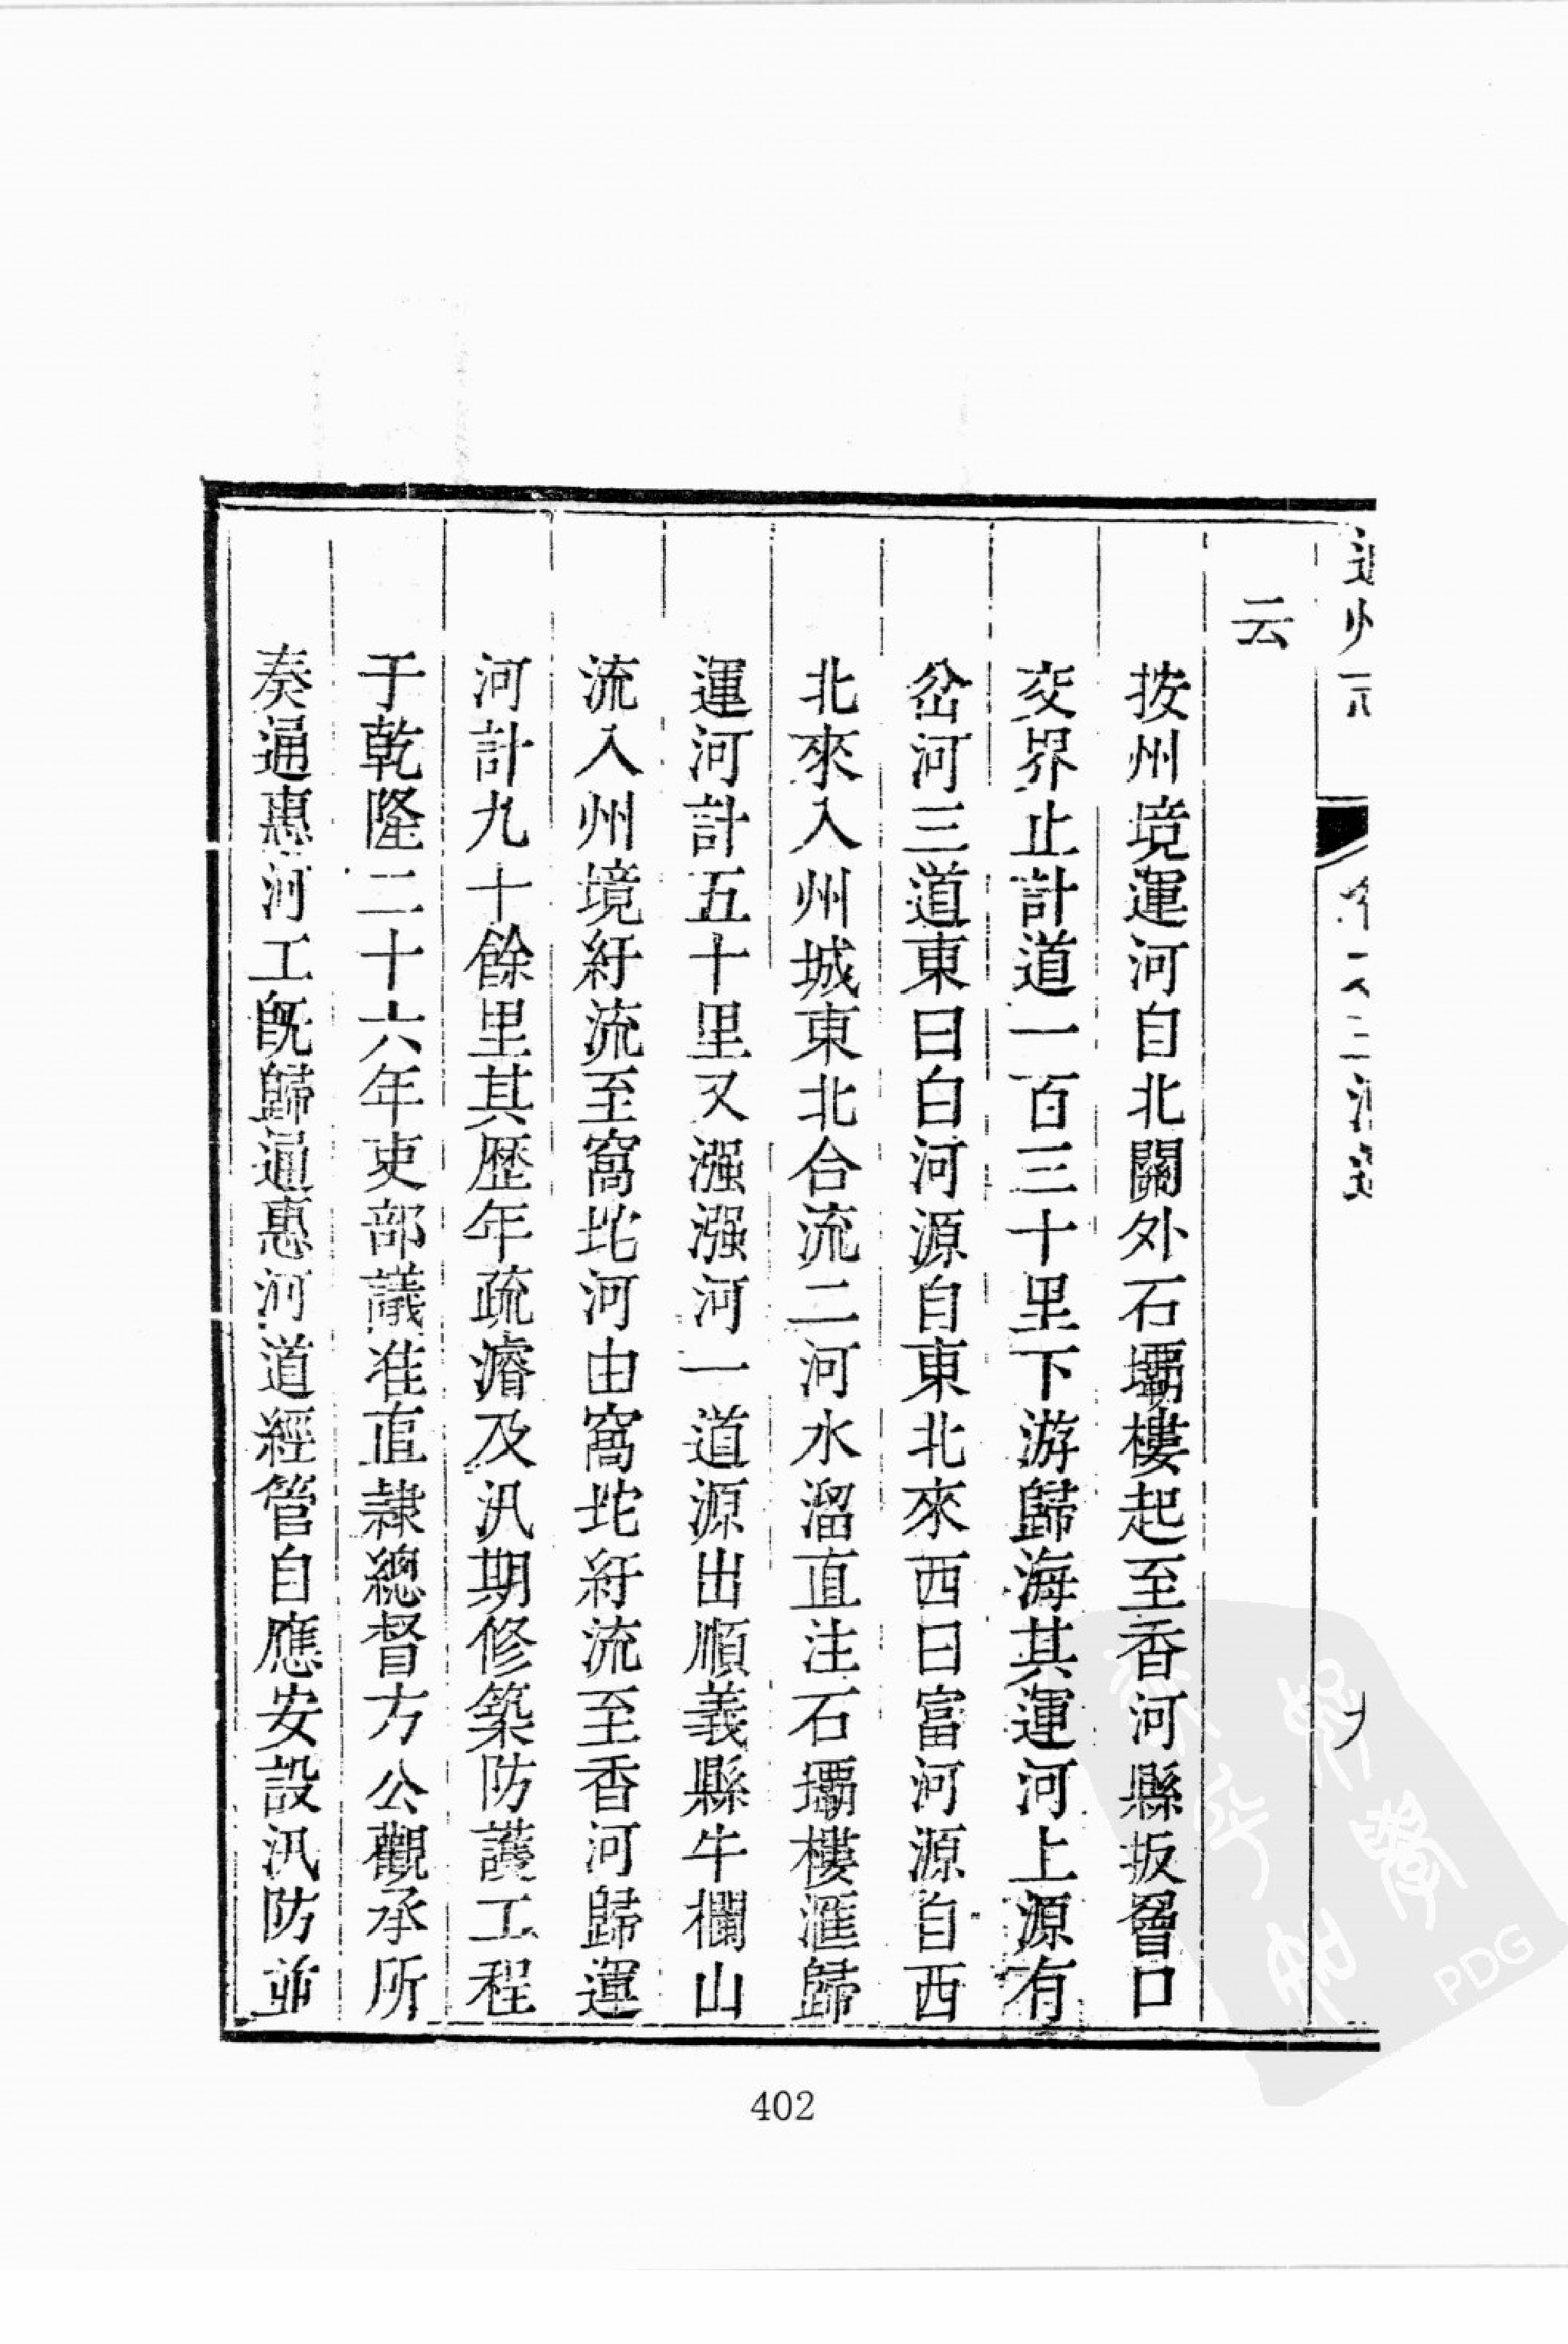 云
按州境運河自北關外石壩樓起至香河縣扳罾口
交界止計道一百三十里下游歸海其運河上源有
岔河三道東曰白河源自東北來西曰富河源自西
北來入州城東北合流二河水溜直注石壩樓滙歸
運河計五十里又漒漒河一道源出順義縣牛欄山
流入州境紆流至窩坨河由窩坨紆流至香河歸運
河計九十餘里其歷年疏濬及汛期修築防護工程
于乾隆二十六年吏部議准直隸總督方公觀承所
奏通惠河工既歸通惠河道經管自應安設汛防並
402
PDG